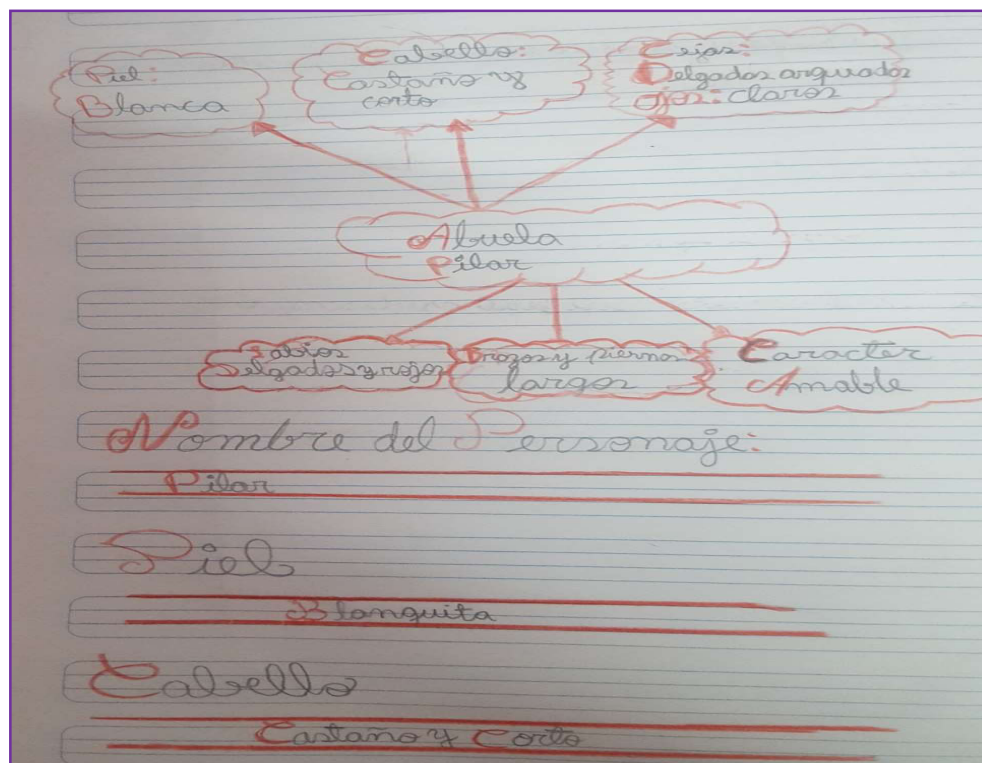 Piel:
Blanca
Cabello:
Castaño y
corto
Cejas:
Delgadas arqueadas
ojos: claros
Abuela
Pilar
Labios
Delgados y rojos
Brazos y piernas
largos
Caracter
Amable
Nombre del Personaje:
Pilar
Piel
Blanquita
Cabello
Castaño y Corto